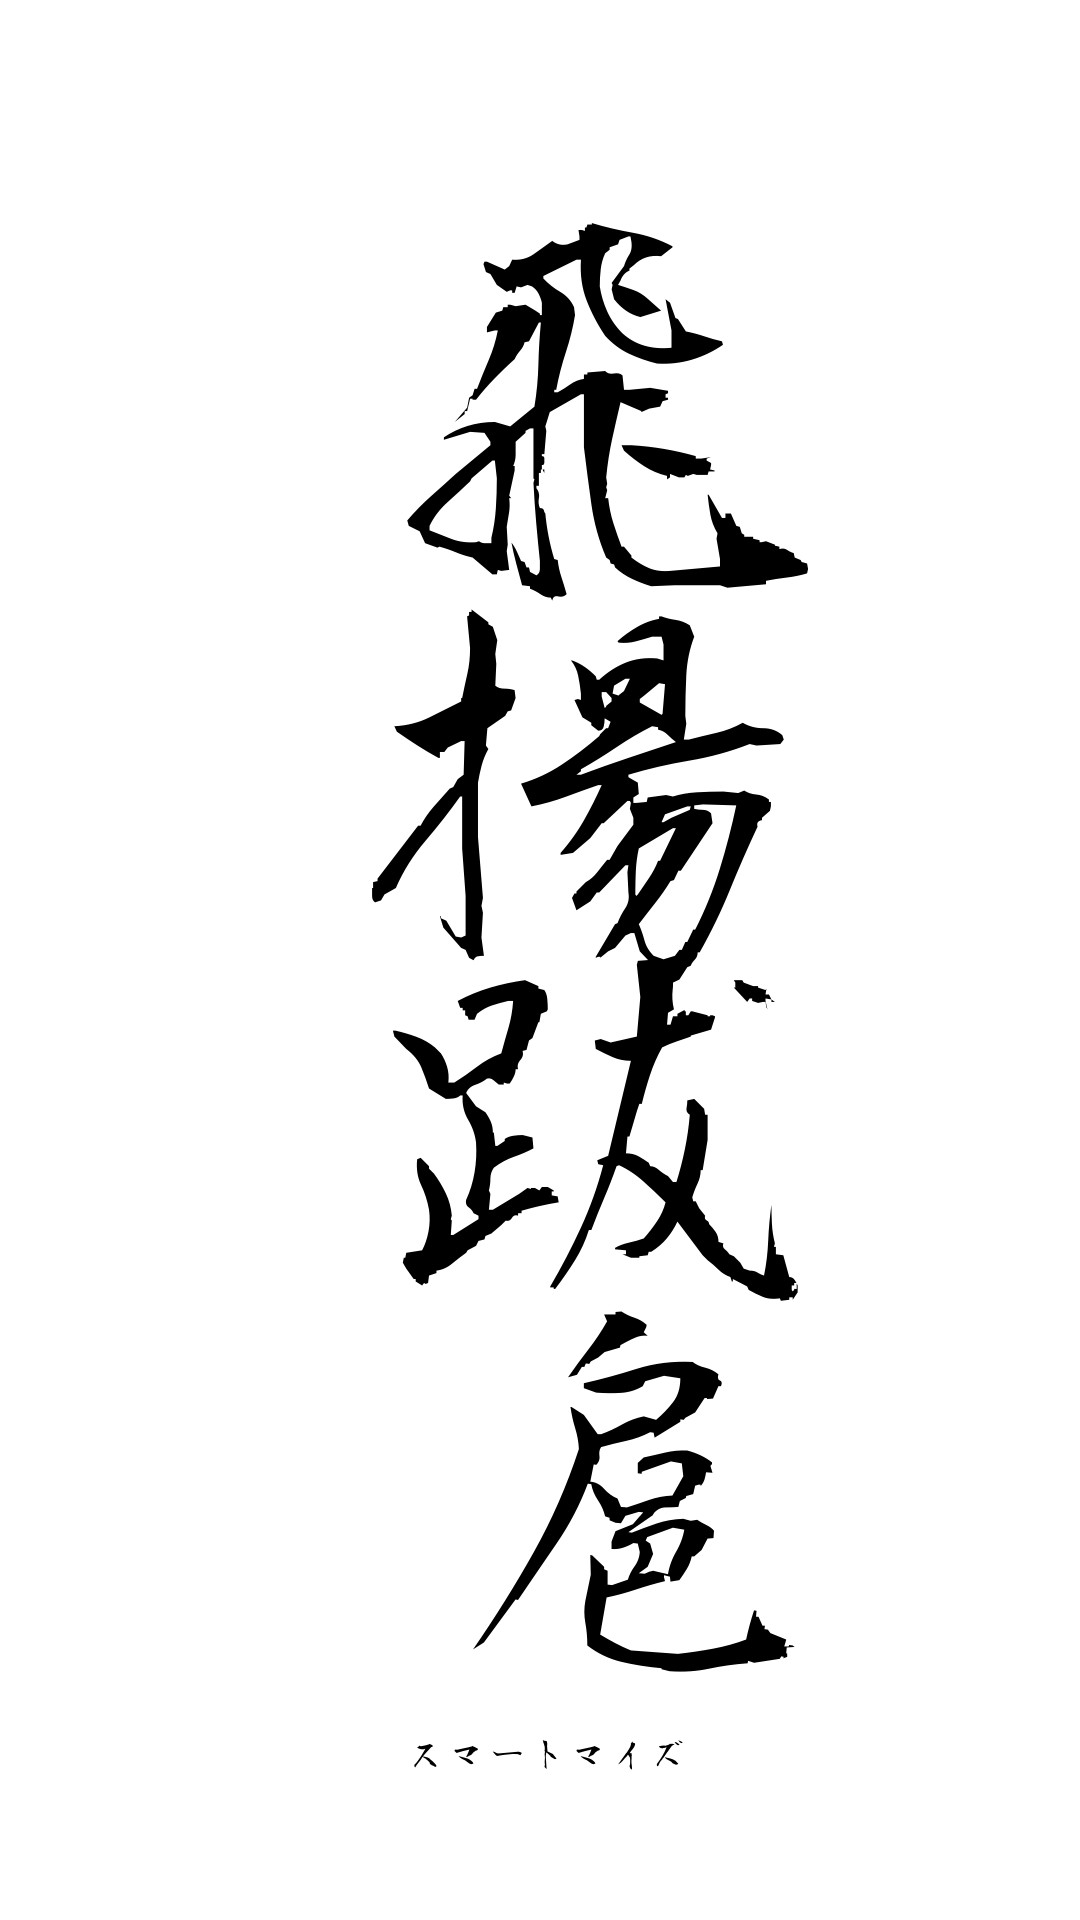 飛揚跋扈
スマートマイズ